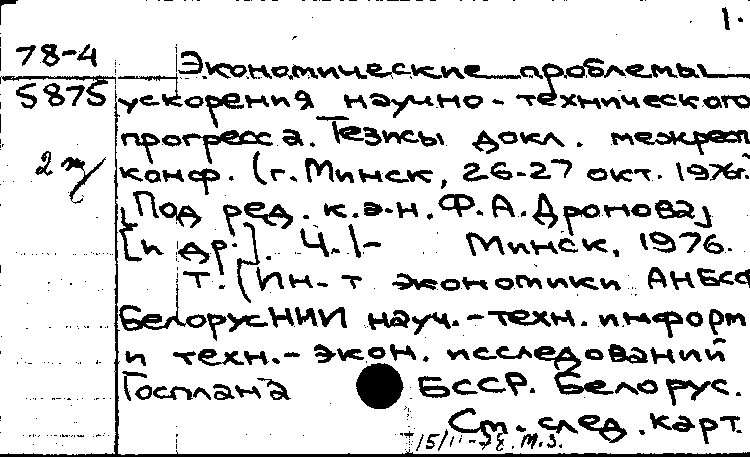 1.
78-4 Экономические проблемы
5875 ускорения научно-технического
прогресса. Тезисы докл. межресп
2 конф. (г. Минск, 26-27 окт. 1976г.
[Под ред. к.э.н. Ф.А.Дронова]
[и др.]. Ч.1- Минск, 1976.
Т. (Ин-т экономики АН БССР
БелорусНИИ науч.-техн. информ
и техн.-экон. исследований
Госплана БССР. Белорус.
См. след. карт.
15/II-78. м.з.